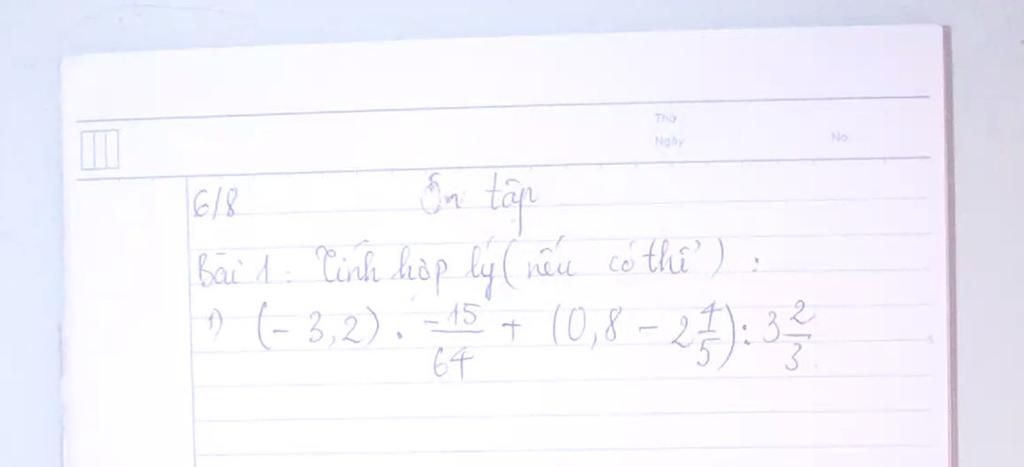 Thứ
Ngày No
6/8 Ôn tập
Bài 1: Tính hợp lý (nếu có thể):
1) (-3,2) . -15/64 + (0,8 - 2 4/5) : 3 2/3